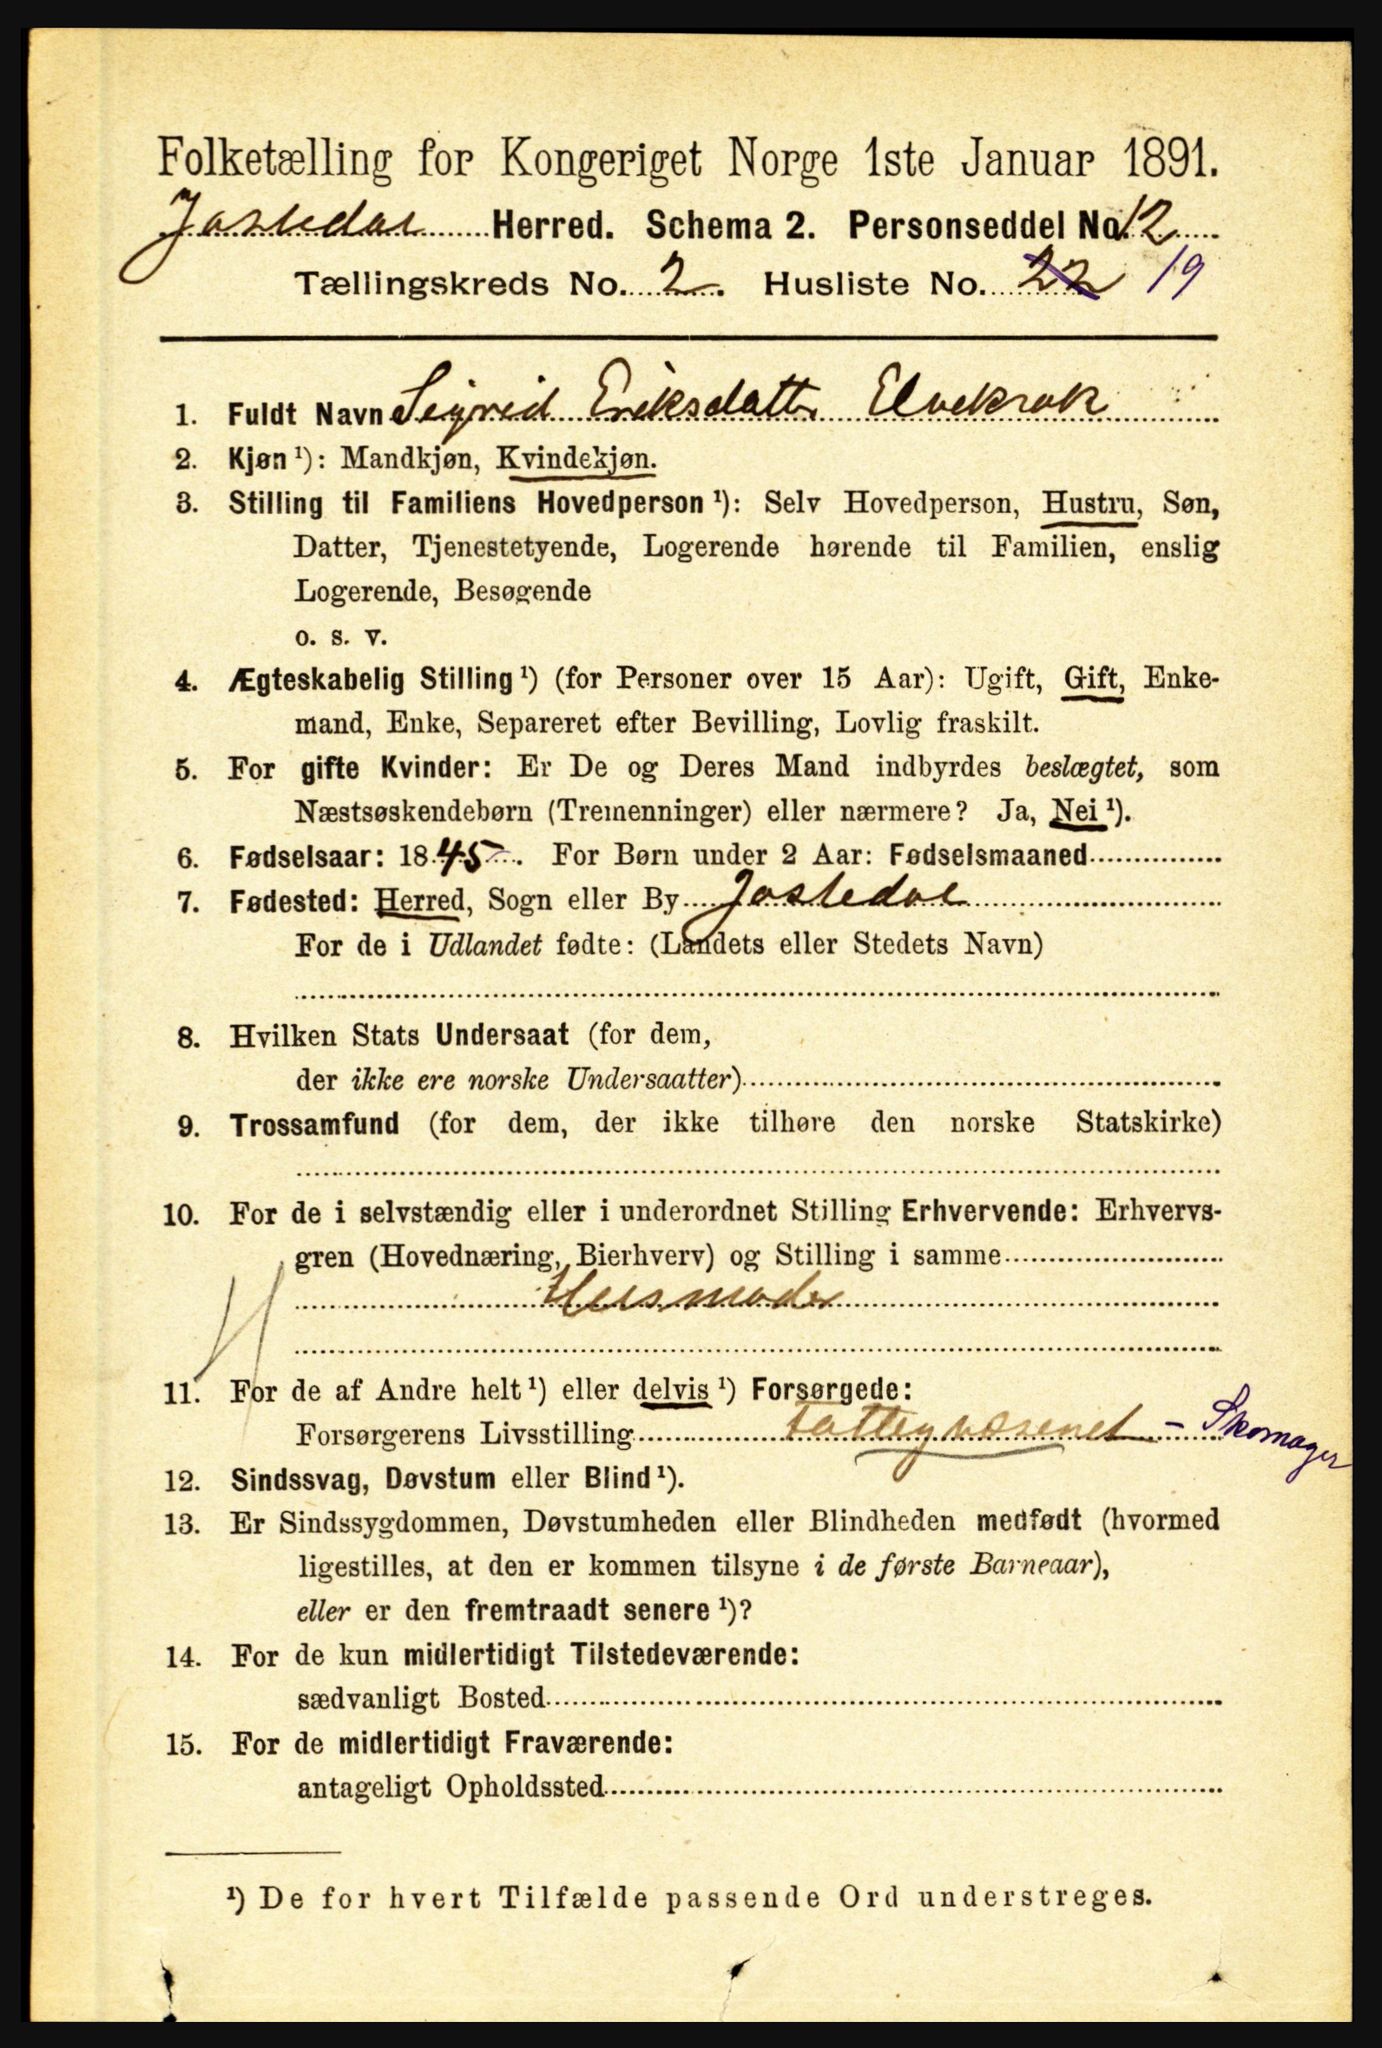 Folketælling for Kongeriget Norge 1ste Januar 1891.
Jostedal Herred. Schema 2. Personseddel No. 12
Tællingskreds No. 2. Husliste No. 22 19
1. Fuldt Navn Sigrid Eriksdatter Elvekrok
2. Kjøn ¹): Mandkjøn, Kvindekjøn.
3. Stilling til Familiens Hovedperson ¹): Selv Hovedperson, Hustru, Søn,
Datter, Tjenestetyende, Logerende hørende til Familien, enslig
Logerende, Besøgende
o. s. v.
4. Ægteskabelig Stilling ¹) (for Personer over 15 Aar): Ugift, Gift, Enke-
mand, Enke, Separeret efter Bevilling, Lovlig fraskilt.
5. For gifte Kvinder: Er De og Deres Mand indbyrdes beslægtet, som
Næstsøskendebørn (Tremenninger) eller nærmere? Ja, Nei ¹).
6. Fødselsaar: 1845. For Børn under 2 Aar: Fødselsmaaned
7. Fødested: Herred, Sogn eller By Jostedal
For de i Udlandet fødte: (Landets eller Stedets Navn)
8. Hvilken Stats Undersaat (for dem,
der ikke ere norske Undersaatter)
9. Trossamfund (for dem, der ikke tilhøre den norske Statskirke)
10. For de i selvstændig eller i underordnet Stilling Erhvervende: Erhvervs-
gren (Hovednæring, Bierhverv) og Stilling i samme
Husmoder
11. For de af Andre helt ¹) eller delvis ¹) Forsørgede:
Forsørgerens Livsstilling Fattigvæsenet - Skomager
12. Sindssvag, Døvstum eller Blind ¹).
13. Er Sindssygdommen, Døvstumheden eller Blindheden medfødt (hvormed
ligestilles, at den er kommen tilsyne i de første Barneaar),
eller er den fremtraadt senere ¹)?
14. For de kun midlertidigt Tilstedeværende:
sædvanligt Bosted
15. For de midlertidigt Fraværende:
antageligt Opholdssted
¹) De for hvert Tilfælde passende Ord understreges.